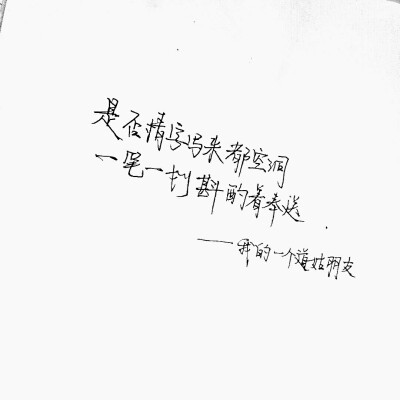 是否情字写来都空洞
一笔一划斟酌着奉送
——我的一个道姑朋友